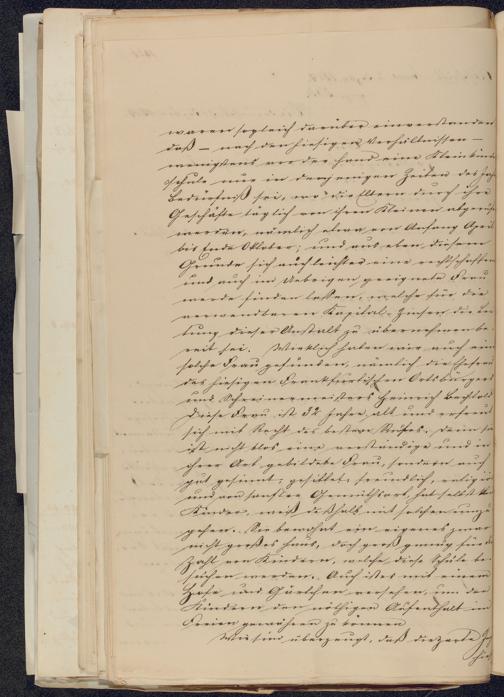 waren sogleich darüber einverstanden
daß — nach den hiesigen Verhältnissen —
wenigstens vor der Hand eine Kleinkinder
schule nur in denjenigen Zeiten des
Bedürfniß sei, wo die Eltern durch ihre
Geschäfte täglich von ihren Kleinen
werden, nämlich etwa von Anfang April
bis Ende Oktober; und aus eben diesem
Grunde sich auch leichter eine rechtschaffene
und auch im Uebrigen geeignete Frau
werde finden lassen, welche für die
verwendbaren Kapital-Zinsen die
tung dieser Anstalt zu übernehmen be
reit sei. Wirklich haben wir auch eine
solche Frau gefunden, nämlich die Ehefrau
des hiesigen Frankfurtischen Ortsbürgers
und Schreinermeisters Heinrich
Diese Frau ist 52 Jahre alt und erfreut
sich mit Recht des besten Rufes. Denn sie
ist nicht blos eine verständige und in
ihrer Art gebildete Frau, sondern auch
gut gesinnt, gesittet, freundlich, religiös
und von sanfter Gemüthsart, hat selbst
Kinder, weiß deßhalb mit solchen umzu
gehen. Sie bewohnt ein eigenes zwar
nicht großes Haus, doch groß genug für die
Zahl von Kindern, welche diese Schule be
suchen werden. Auch ist es mit einem
Hofe und Gärtchen versehen, um den
Kindern den nöthigen Aufenthalt im
Freien gewähren zu können.
Wir sind überzeugt, daß die zarte